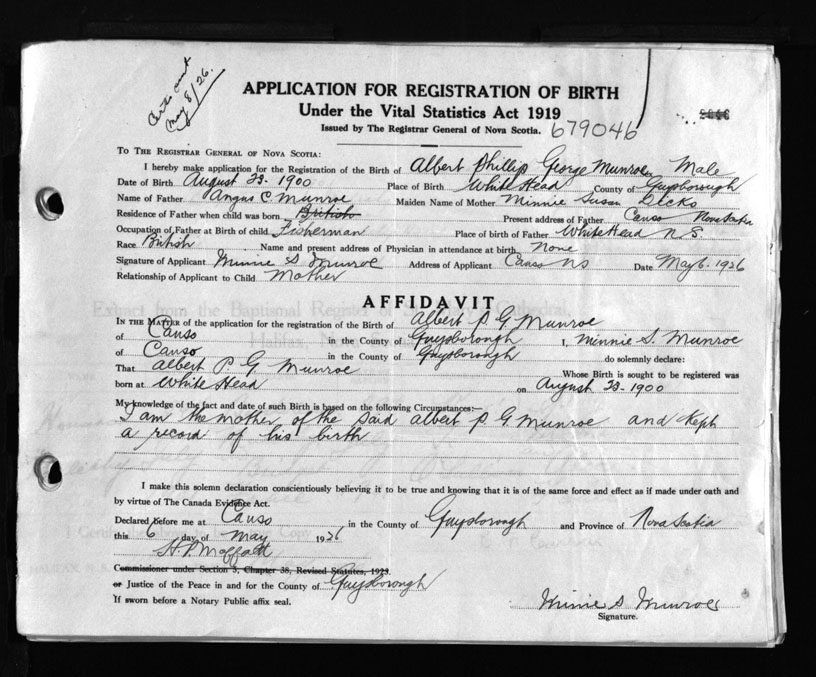 Certs sent
May 8/26.
APPLICATION FOR REGISTRATION OF BIRTH
Under the Vital Statistics Act 1919
Issued by The Registrar General of Nova Scotia. 679046
TO THE REGISTRAR GENERAL OF NOVA SCOTIA:
I hereby make application for the Registration of the Birth of Albert Phillip George Munroe, Male
Date of Birth August 23. 1900 Place of Birth White Head County of Guysborough
Name of Father Angus C Munroe Maiden Name of Mother Minnie Susan
Residence of Father when child was born British Present address of Father Canso Nova Scotia
Occupation of Father at Birth of child Fisherman Place of birth of Father White Head N.S.
Race British Name and present address of Physician in attendance at birth None
Signature of Applicant Minnie S Munroe Address of Applicant Canso NS Date May 6. 1926
Relationship of Applicant to Child Mother
AFFIDAVIT
IN THE MATTER of the application for the registration of the Birth of Albert P. G. Munroe
of Canso in the County of Guysborough I, Minnie S. Munroe
of Canso in the County of Guysborough do solemnly declare:
That Albert P. G Munroe Whose Birth is sought to be registered was
born at White Head on August 23-1900
My knowledge of the fact and date of such Birth is based on the following Circumstances:—
I am the mother of the said Albert P G Munroe and Keph
a record of his birth
I make this solemn declaration conscientiously believing it to be true and knowing that it is of the same force and effect as if made under oath and
by virtue of The Canada Evidence Act.
Declared before me at Canso in the County of Guysborough and Province of Nova Scotia
this 6 day of May 1926
H. P. Moffatt
Commissioner under Section 5, Chapter 38, Revised Statutes, 1923.
or Justice of the Peace in and for the County of Guysborough
If sworn before a Notary Public affix seal.
Minnie S Munroe
Signature.